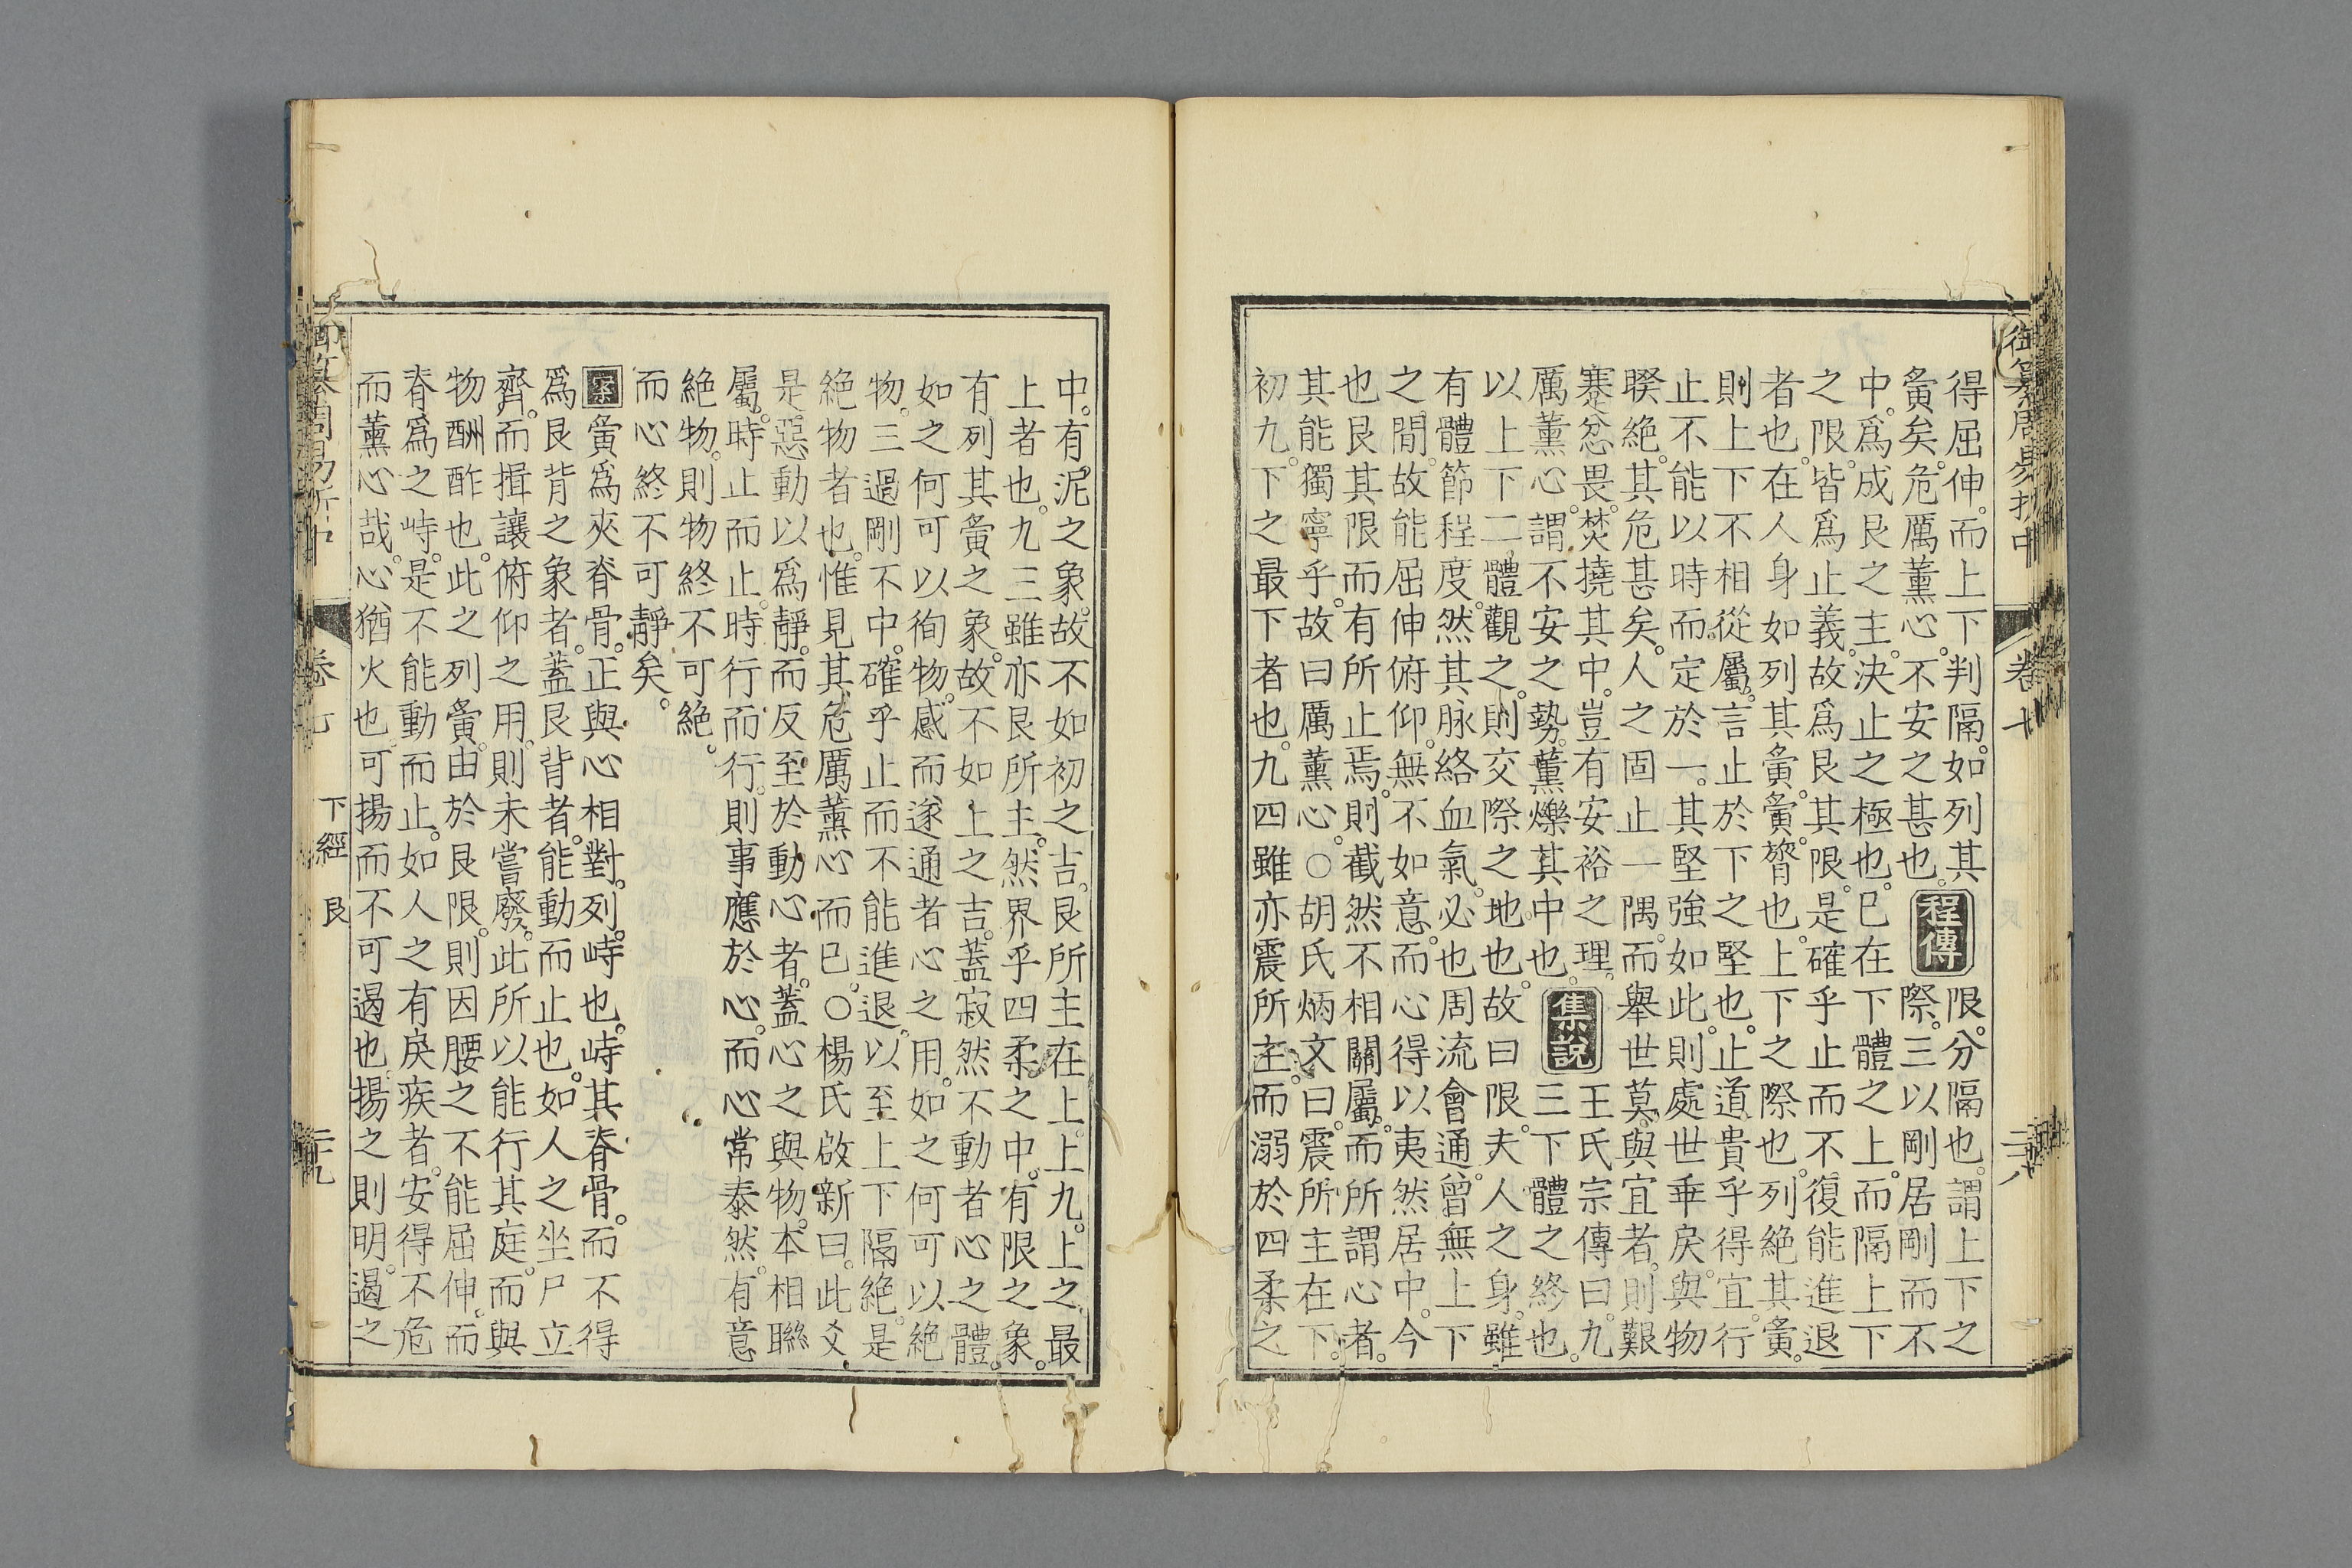 御纂周易折中 卷七 二十八
得屈伸。而上下判隔。如列其
夤矣。危厲薰心。不安之甚也。
程傳
限。分隔也。謂上下之
際。三以剛居剛而不
中。爲成艮之主。決止之極也。已在下體之上。而隔上下
之限。皆爲止義。故爲艮其限。是確乎止而不復能進退
者也。在人身如列其夤。夤。膂也。上下之際也。列絕其夤。
則上下不相從屬。言止於下之堅也。止道貴乎得宜。行
止不能以時。而定於一。其堅強如此。則處世乖戾。與物
睽絕。其危甚矣。人之固止一隅。而舉世莫與宜者。則艱
蹇忿畏。焚撓其中。豈有安裕之理。
厲薰心。謂不安之勢。薰爍其中也。
集說
王氏宗傳曰。九
三下體之終也。
以上下二體觀之。則交際之地也。故曰限。夫人之身。雖
有體節程度。然其脉絡血氣。必也周流會通。曾無上下
之間。故能屈伸俯仰。無不如意。而心得以夷然居中。今
也艮其限而有所止焉。則截然不相關屬。而所謂心者。
其能獨寧乎。故曰厲薰心。○胡氏炳文曰。震所主在下。
初九。下之最下者也。九四雖亦震所主。而溺於四柔之
中。有泥之象。故不如初之吉。艮所主在上。上九。上之最
上者也。九三雖亦艮所主。然界乎四柔之中。有限之象。
有列其夤之象。故不如上之吉。蓋寂然不動者心之體。
如之何可以徇物。感而遂通者心之用。如之何可以絕
物。三過剛不中。確乎止而不能進退。以至上下隔絕。是
絕物者也。惟見其危厲薰心而已。○楊氏啟新曰。此爻
是惡動以爲靜。而反至於動心者。蓋心之與物。本相聯
屬。時止而止。時行而行。則事應於心。而心常泰然。有意
絕物。則物終不可絕。
而心終不可靜矣。
案
夤爲夾脊骨。正與心相對。列。峙也。峙其脊骨。而不得
爲艮背之象者。蓋艮背者。能動而止也。如人之坐尸立
齊。而揖讓俯仰之用。則未嘗廢。此所以能行其庭。而與
物酬酢也。此之列夤。由於艮限。則因腰之不能屈伸。而
脊爲之峙。是不能動而止。如人之有戾疾者。安得不危
而薰心哉。心猶火也。可揚而不可遏也。揚之則明。遏之
御纂周易折中 卷七 下經 艮 二十九